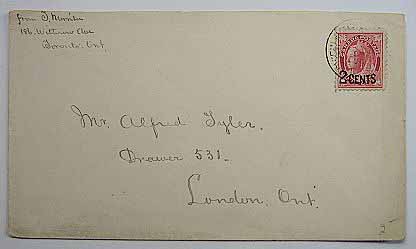 from J.
186. Ave
Toronto. Ont.
2 CENTS
Mr. Alfred Tyler.
Drawer 531.
London, Ont.